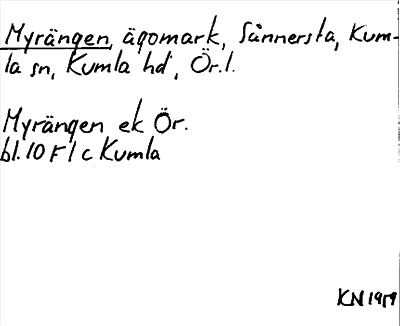 Myrängen, ägomark, Sånnersta, Kum-
la sn, Kumla hd, Ör.l.
Myrängen ek Ör.
bl. 10 F 1 c Kumla
KN 1959